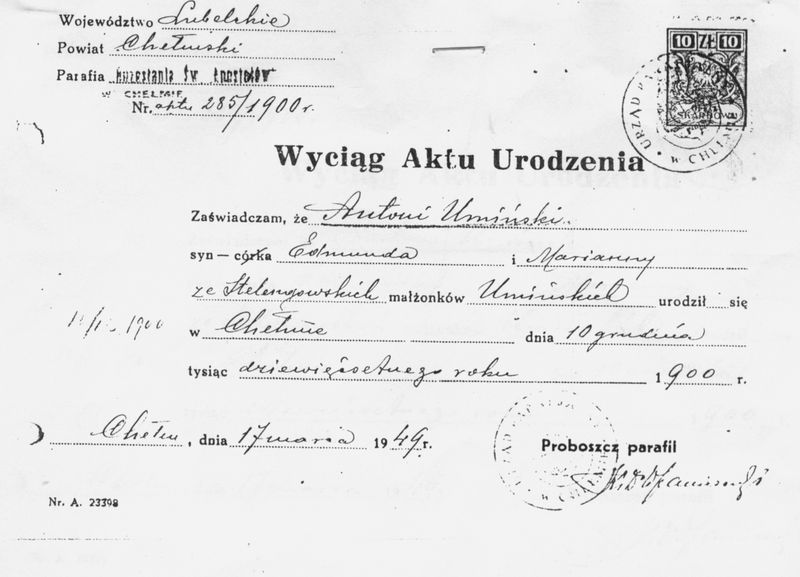 Województwo Lubelskie
Powiat Chełmski
Parafia Rozesłania Św. Apostołów
w CHEŁMIE
Nr. aktu 285/1900 r.
10 ZŁ 10
SKARBOWA
URZĄD PARAFIALNY
W CHEŁMIE
Wyciąg Aktu Urodzenia
Zaświadczam, że Antoni Umiński.
syn — córka Edmunda i Marianny
ze Stelengowskich małżonków Umińskich urodził się
w Chełmie dnia 10 grudnia
1900
tysiąc dziewięćsetnego roku 1900 r.
Chełm, dnia 17 marca 1949 r.
Proboszcz parafii
W CHEŁMIE
Nr. A. 23398